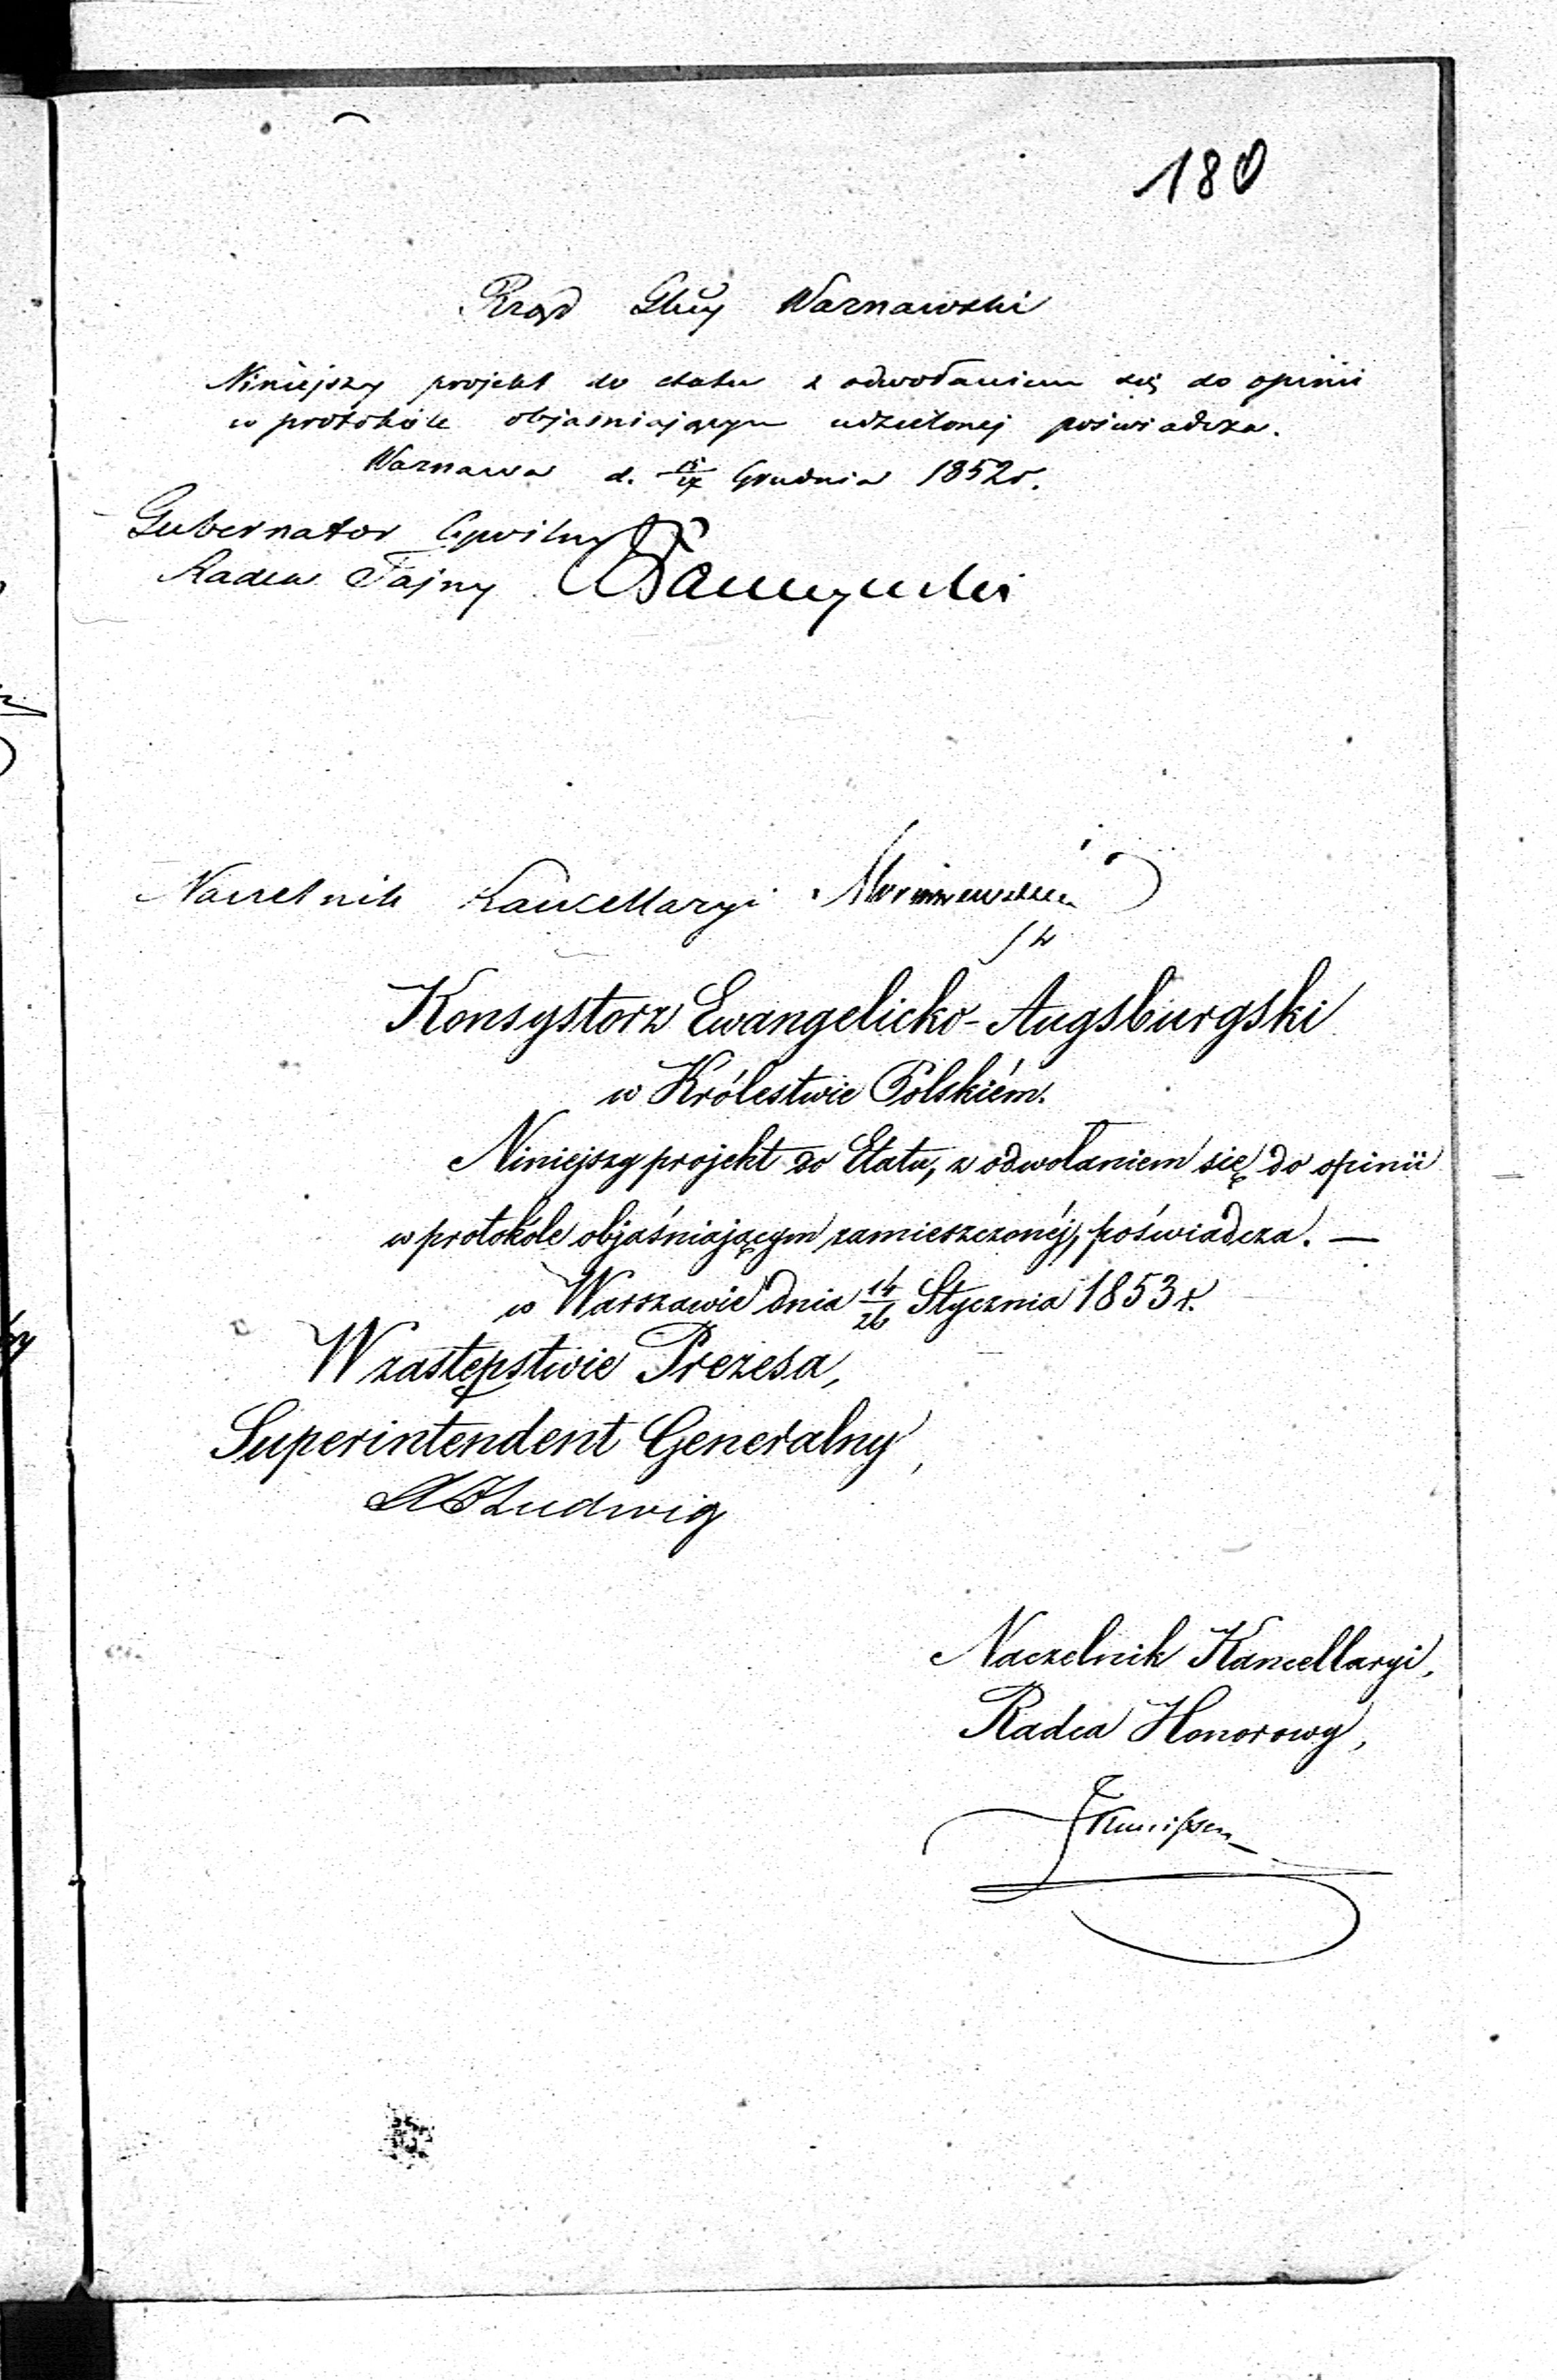 180
Rząd Gbny Warszawski
Niniejszy projekt do etatu z odwołaniem się do opinii
w protokóle objaśniającym udzielonej poświadcza.
Warszawa d. Grudnia 1852 r.
Gubernator Cywilny
Radca Tajny
Naczelnik Kancellaryi
Konsystorz Ewangelicko-Augsburgski
w Królestwie Polskiém.
Niniejszy projekt do Etatu, z odwołaniem się do opinii
w protokóle objaśniającym zamieszczonéj, poświadcza. —
w Warszawie dnia 14/26 Stycznia 1853 r.
W zastępstwie Prezesa,
Superintendent Generalny,
Ludwig
Naczelnik Kancellaryi,
Radca Honorowy,